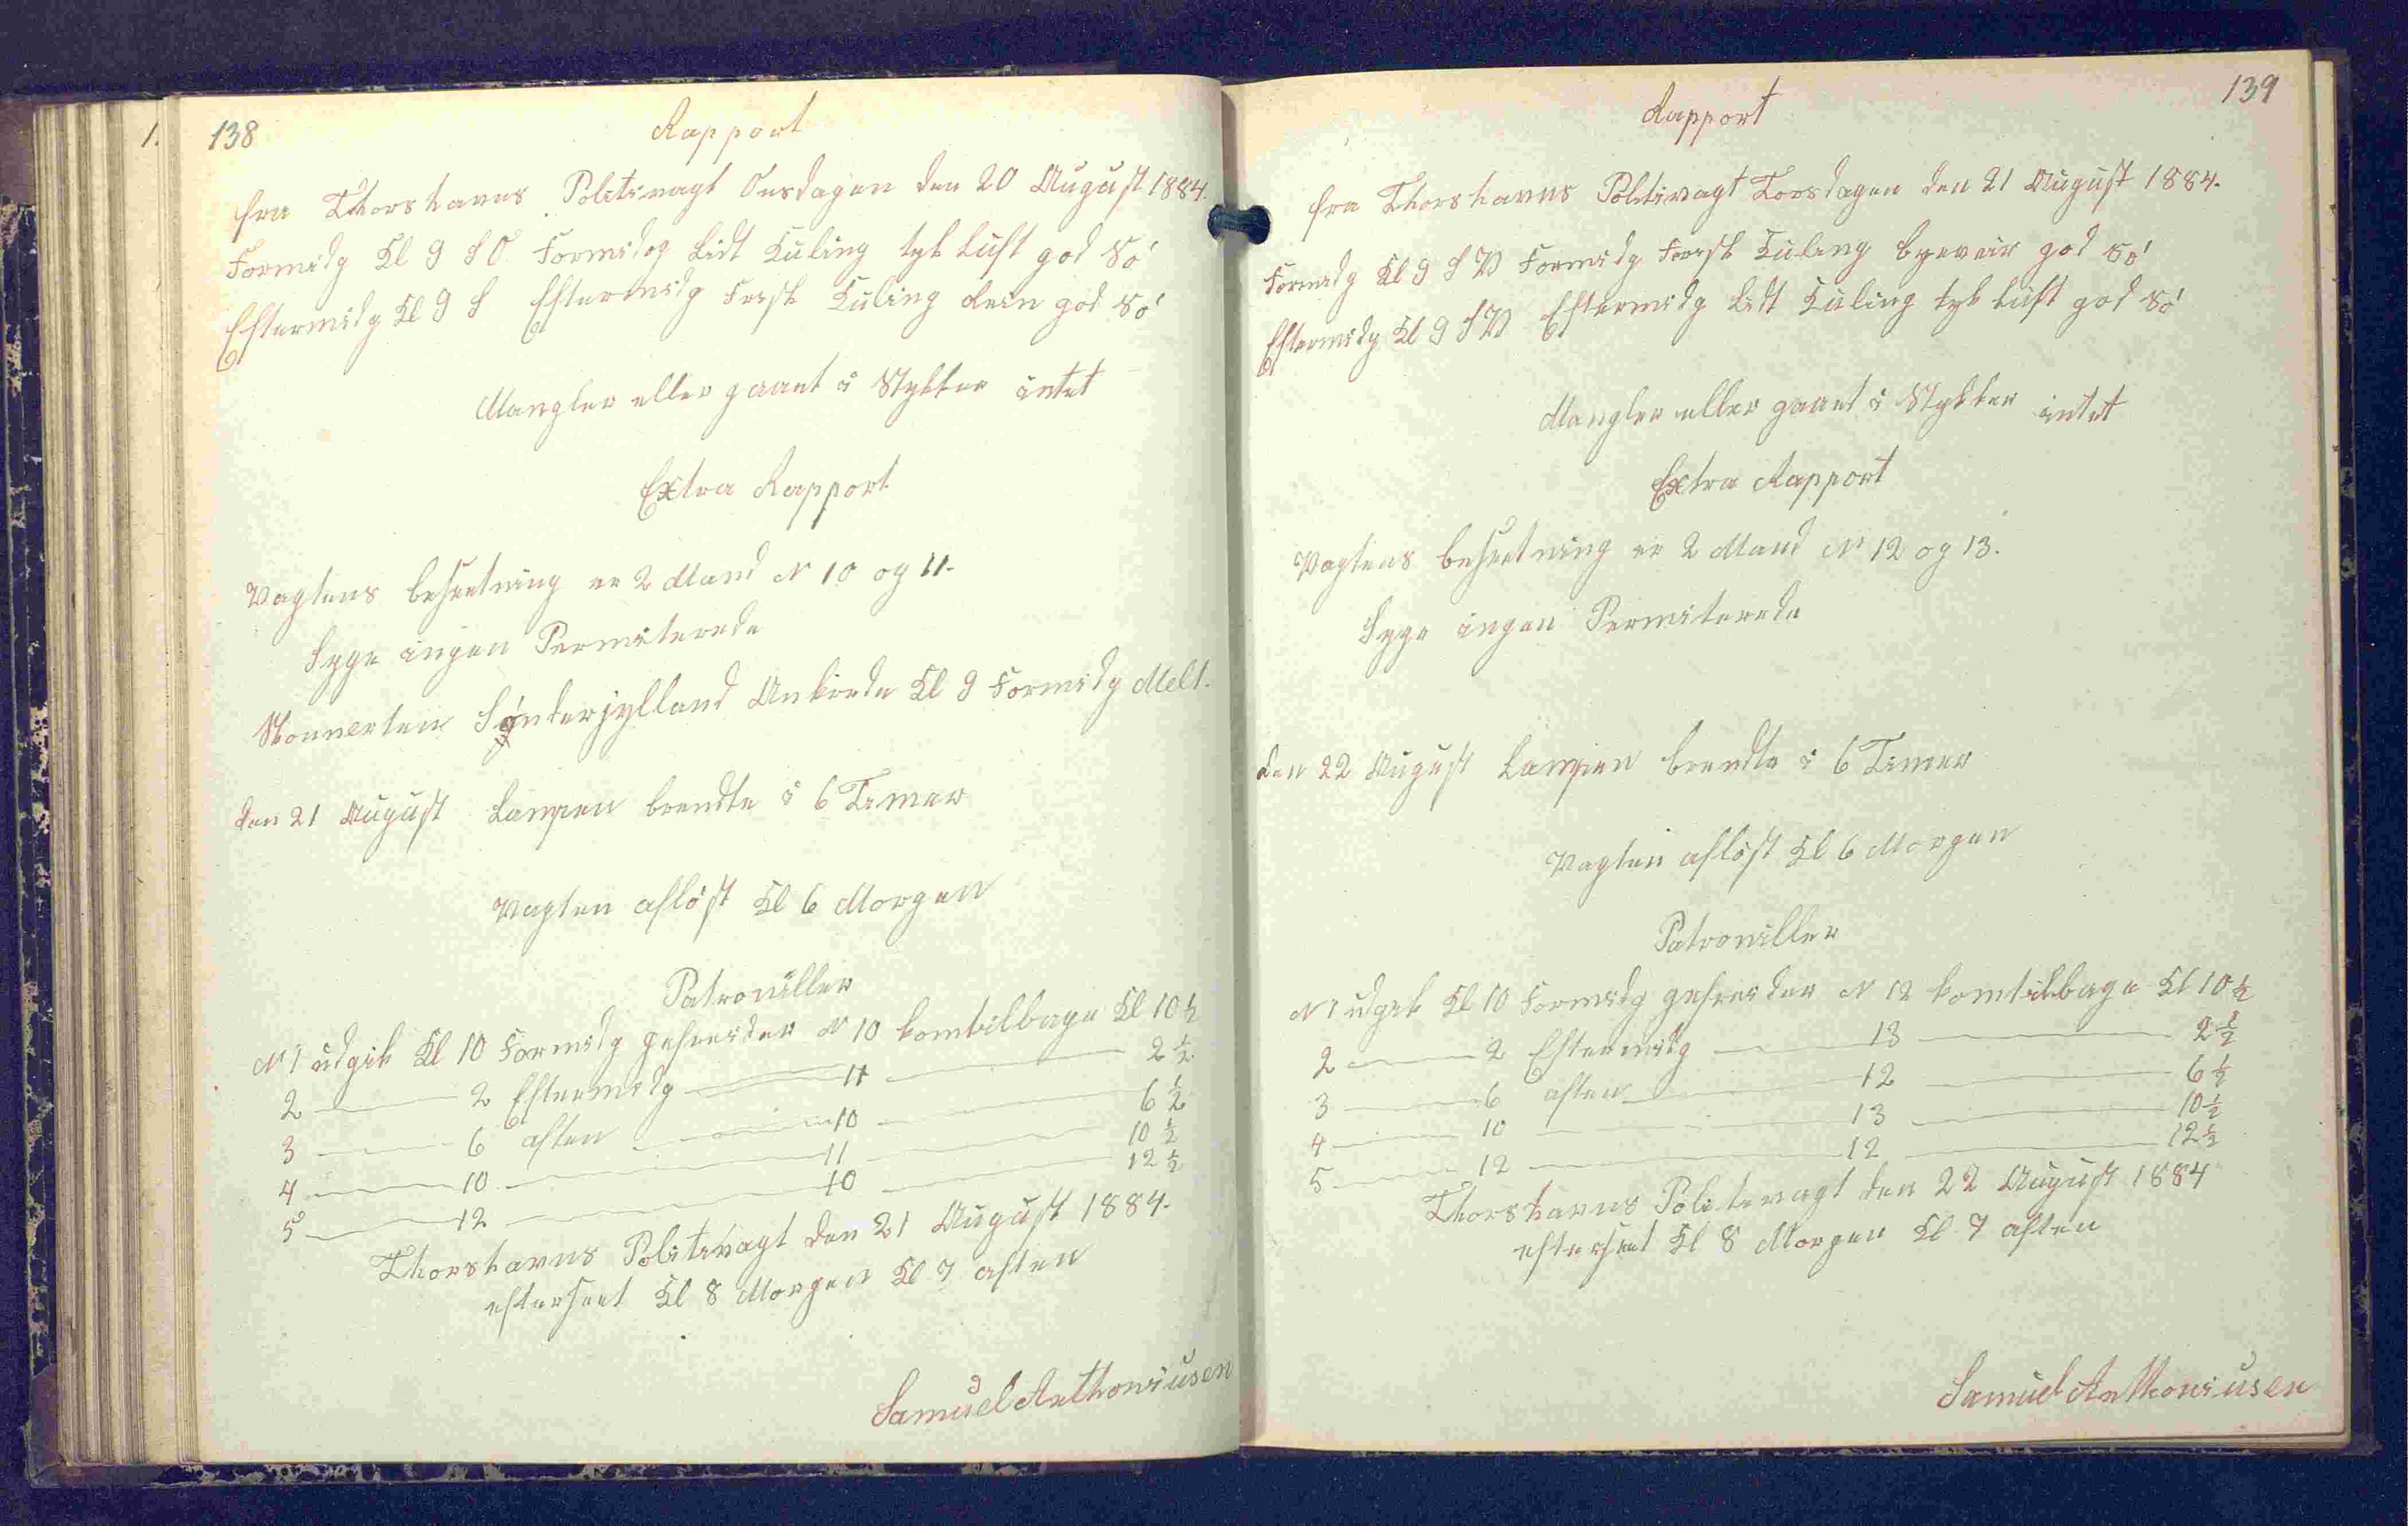 138
Rapport
fra Thorshavns Politivagt Onsdagen den 20 August 1884.
Formidg Kl 9 S O Formidg lidt Kuling tyk luft god Sö
Eftermidg Kl 9 S Eftermidg Frisk Kuling Rein god Sö
Mangler eller gaaet i Stykker intet
Extra Rapport
Vagtens besætning er 2 Mand N 10 og 11.
Syge ingen Permiterede
Skonnerten Sønderjylland Ankrede Kl 9 Formidg Melt.
den 21 August Lampen brendte i 6 Timer
Vagten aflöst Kl 6 Morgen
Patrouiller
N 1 udgik Kl 10 Formidg gefreider N 10 komtilbage Kl 10 ½
2 — 2 Eftermidg — 11 — 2 ½
3 — 6 aften — 10 — 6 ½
4 — 10 — 11 — 10 ½
5 — 12 — 10 — 12 ½
Thorshavns Politivagt den 21 August 1884.
efterseet Kl 8 Morgen Kl 7 aften
Samuel Anthoniusen
139
Rapport
fra Thorshavns Politivagt Torsdagen den 21 August 1884.
Formidg Kl 9 S V Formidg Frisk Kuling byeveir god sö
Eftermidg Kl 9 S V Eftermidg lidt Kuling tyk luft god Sö
Mangler eller gaaet i Stykker intet
Extra Rapport
Vagtens besætning er 2 Mand N 12 og 13.
Syge ingen Permiterede
den 22 August Lampen brendte i 6 Timer
Vagten aflöst Kl 6 Morgen
Patrouiller
N 1 udgik Kl 10 Formidg gefreider N 12 komtilbage Kl 10 ½
2 — 2 Eftermidg — 13 — 2 ½
3 — 6 aften — 12 — 6 ½
4 — 10 — 13 — 10 ½
5 — 12 — 12 — 12 ½
Thorshavns Politivagt den 22 August 1884
efterseet Kl 8 Morgen Kl 7 aften
Samuel Anthoniusen